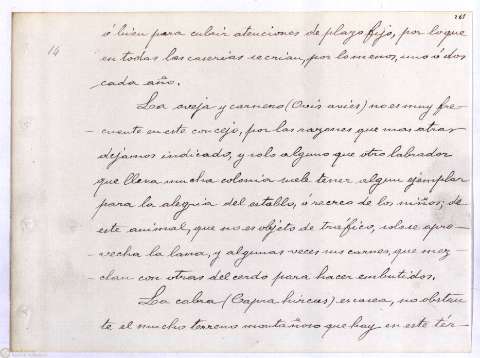 ó bien para cubrir atenciones de plazo fijo, por lo que
14 en todas las caserias se crian, por lo menos, uno ó dos
cada año.
La oveja y carnero (Ovis aries) no es muy fre-
cuente en este concejo, por las razones que mas atras
dejamos indicado, y solo alguno que otro labrador
que lleva mucha colonia suele tener algun ejemplar
para la alegria del establo, ó recreo de los niños; de
este animal, que no es objeto de tráfico, solo se apro-
vecha la lana, y algunas veces sus carnes, que mez-
clan con otras del cerdo para hacer embutidos.
La cabra (Capra hircus) escasea, no obstan-
te el mucho terreno montañoso que hay en este tér-